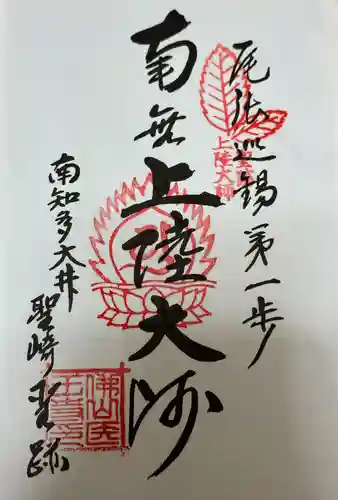 尾張巡錫第一歩
上陸大師
南無上陸大師
南知多大井
聖崎聖跡